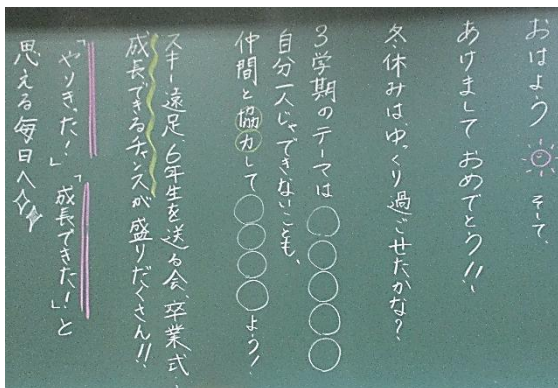 おはよう そして、
あけまして おめでとう!!
冬休みは、ゆっくり過ごせたかな?
3学期のテーマは○○○○○
自分一人じゃできないことも、
仲間と協力して○○○○よう!
スキー遠足、6年生を送る会、卒業式、
成長できるチャンスが盛りだくさん!!
「やりきった!」「成長できた!」と
思える毎日へ